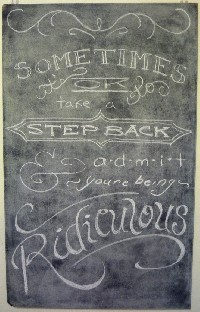 SOMETIMES
it's OK to
take a
STEP BACK
& a·d·m·i·t
you're being
Ridiculous